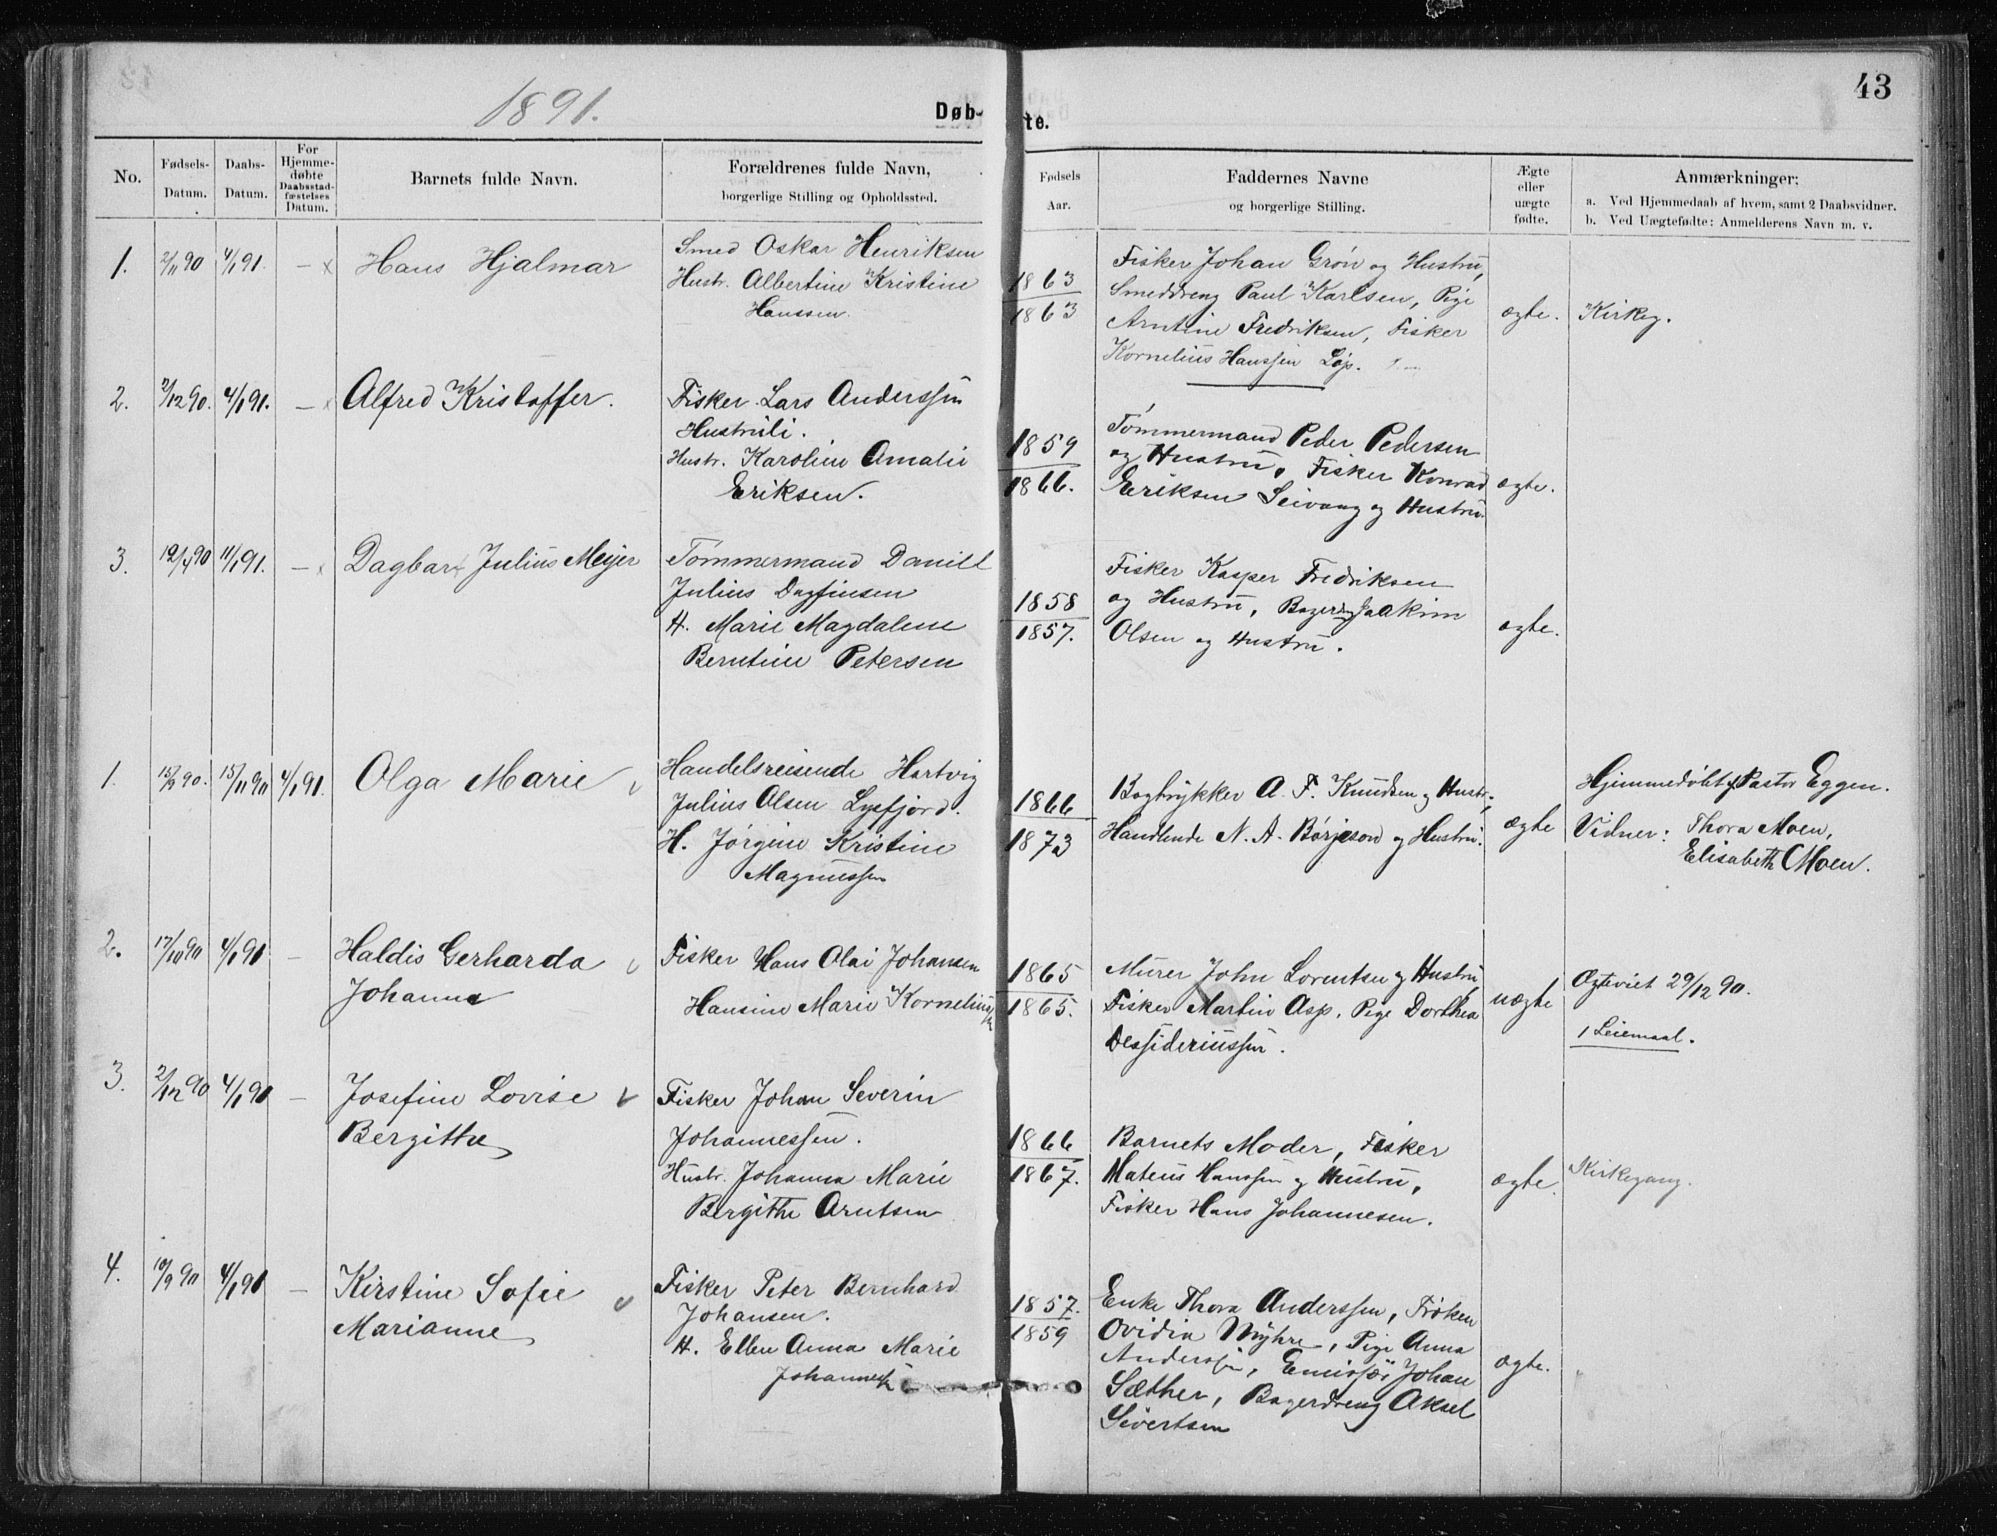 43
1891.
Døb- te.
No.
Fødsels-
Datum.
Daabs-
Datum.
For
Hjemme-
døbte
Daabsstad-
fæstelses
Datum.
Barnets fulde Navn.
Forældrenes fulde Navn,
borgerlige Stilling og Opholdssted.
Fødsels
Aar.
Faddernes Navne
og borgerlige Stilling.
Ægte
eller
uægte
fødte.
Anmærkninger:
a. Ved Hjemmedaab af hvem, samt 2 Daabsvidner.
b. Ved Uægtefødte: Anmelderens Navn m. v.
1. 2/11 90 4/1 91. — x Hans Hjalmar
Smed Oskar Henriksen
Hustr. Albertine Kristine
Hanssen.
1863
1863
Fisker Johan Grøn og Hustru,
Smeddreng Paul Karlsen, Pige
Arntine Fredriksen, Fisker
Kornelius Hanssen Løp.
ægte. Kirkeg.
2. 2/12 90. 4/1 91. — x Alfred Kristoffer.
Fisker Lars Anderssen
Hustruli.
Hustr. Karoline Amalie
Eriksen.
1859
1866.
Tømmermand Peder Pedersen
og Hustru, Fisker Konrad
Eriksen Leivang og Hustru.
ægte.
3. 19/4 90 11/1 91. — x Dagbar Julius Meyer
Tømmermand Daniel
Julius Dagfinsen
H. Marie Magdalene
Berntine Petersen
1858
1857.
Fisker Kasper Fredriksen
og Hustru, Bager Joakim
Olsen og Hustru.
ægte.
1. 15/9 90. 15/11 90 4/1 91. Olga Marie v
Handelsreisende Hartvig
Julius Olsen Lysfjord.
H. Jørgine Kristine
Magnussen
1866
1873
Bogtrykker A. F. Knudsen og Hustr.,
Handlende N. A. Børjeson og Hustru.
ægte
Hjemmedøbt af Pastor Eggen.
Vidner: Thora Moen,
Elisabeth Moen.
2. 17/10 90 4/1 91 — Haldis Gerharda v
Johanna
Fisker Hans Olai Johansen
Hansine Marie Korneliussen
1865
1865.
Murer John Lorentsen og Hustru
Fisker Martin Asp, Pige Dorthea
Dessideriussen.
uægte
Ægteviet 29/12 90.
1 Leiemaal.
3. 2/12 90 4/1 91 — Josefine Lovise v
Bergitthe
Fisker Johan Severin
Johannessen.
Hustr. Johanna Marie
Bergitthe Arntsen
1866
1867.
Barnets Moder, Fisker
Mateus Hanssen og Hustru,
Fisker Hans Johannesen.
ægte. Kirkegang.
4. 10/9 90 4/1 91 — Kirstine Sofie v
Marianne
Fisker Peter Bernhard
Johansen.
H. Ellen Anna Marie
Johannes
1857.
1859
Enke Thora Anderssen, Frøken
Ovidia Myhre, Pige Anna
Anderssen, Emissær Johan
Sæther, Bagerdreng Aksel
Sivertsen
ægte.